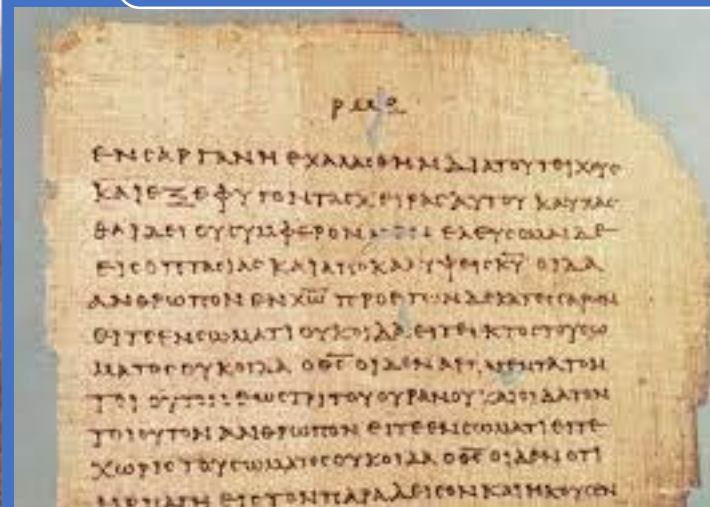 ΕΝϹΑΡΓΑΝΗΕΧΑΛΑϹΘΗΝΔΙΑΤΟΥΤΕΙΧΟΥϹ
ΚΑΙΕΞΕΦΥΓΟΝΤΑϹΧΕΙΡΑϹΑΥΤΟΥΚΑΥΧΑϹ
ΘΑΙΔΕΙΟΥϹΥΜΦΕΡΟΝ ΕΛΕΥϹΟΜΑΙΔΕ
ΕΙϹΟΠΤΑϹΙΑϹΚΑΙΑΠΟΚΑΛΥΨΕΙϹΚ̅Υ̅ ΟΙΔΑ
ΑΝΘΡΩΠΟΝΕΝΧ̅Ω̅ ΠΡΟΕΤΩΝΔΕΚΑΤΕϹϹΑΡΩΝ
ΕΙΤΕΕΝϹΩΜΑΤΙΟΥΚΟΙΔΑΕΙΤΕΕΚΤΟϹΤΟΥϹΩ
ΜΑΤΟϹΟΥΚΟΙΔΑ ΟΘ̅Ϲ̅ ΟΙΔΕΝΑΡΠΑΓΕΝΤΑΤΟΝ
ΤΟΙΟΥΤΟΝΕΩϹΤΡΙΤΟΥΟΥΡΑΝΟΥΚΑΙΟΙΔΑΤΟΝ
ΤΟΙΟΥΤΟΝΑΝΘΡΩΠΟΝΕΙΤΕΕΝϹΩΜΑΤΙΕΙΤΕ
ΧΩΡΙϹΤΟΥϹΩΜΑΤΟϹΟΥΚΟΙΔΑ ΟΘ̅Ϲ̅ ΟΙΔΕΝΟΤΙ
ΗΡΠΑΓΗΕΙϹΤΟΝΠΑΡΑΔΕΙϹΟΝΚΑΙΗΚΟΥϹΕΝ